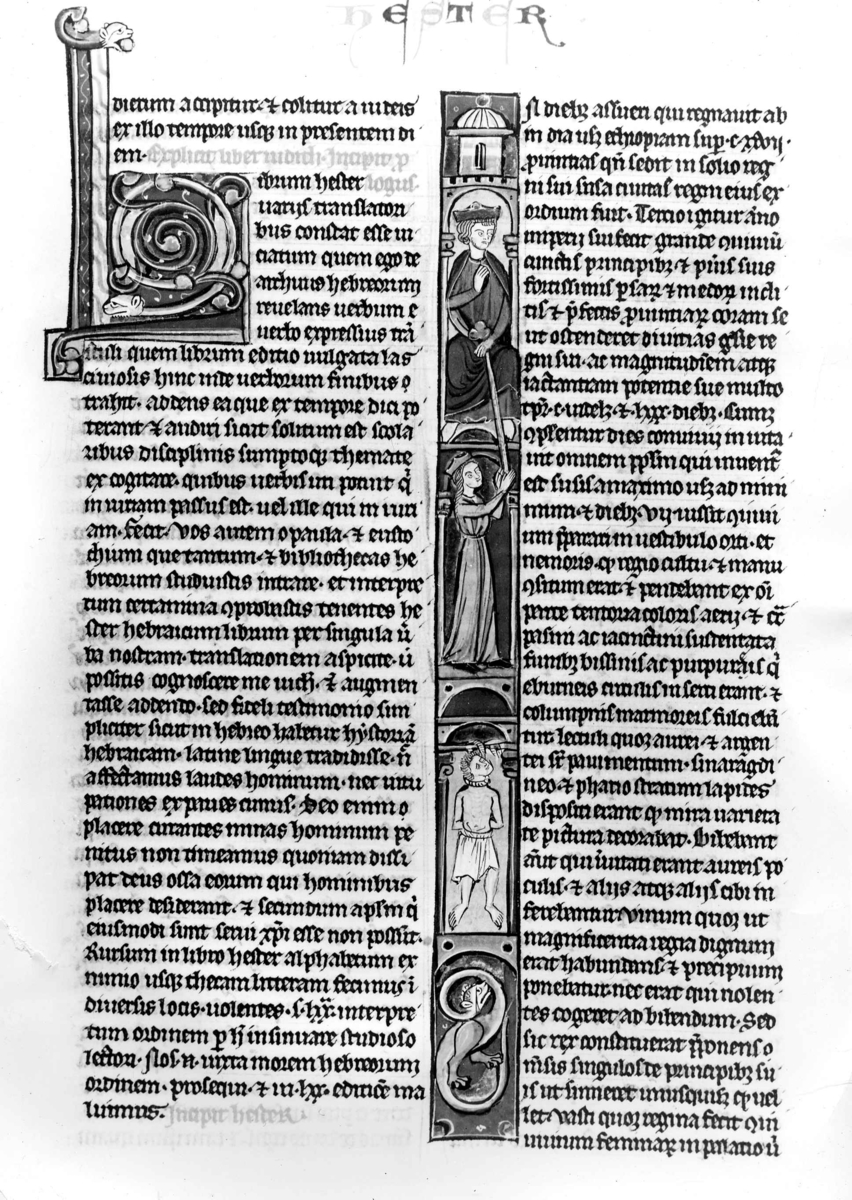 HESTER
dictum accipitur· ⁊ colitur a iudeis
ex illo tempore usq; in presentem di
em· Explicit liber iudich· Incipit p
ibrum hester logus·
uariis translatori
bus constat esse ui
ciatum quem ego de
archiuis hebreorum
reuelans uerbum e
uerbo expressius trā
stuli quem librum editio uulgata las
ciniosis hinc inde uerborum finibus ɔ
trahit· addens ea que ex tempore dici po
terant ⁊ audiri sicut solitum est scola
ribus disciplinis sumpto q; themate
ex cogitare· quibus uerbis uti potuit q̄
in iuriam passus est· uel ille qui in iuri
am· fecit· Vos autem o paula· ⁊ eusto
chium que tantum· ⁊ bibliothecas he
breorum studuistis intrare· et interpre
tum certamina ɔprobastis tenentes he
ster hebraicum librum per singula ū
ba nostram· translationem aspicite· ū
possitis cognoscere me nich̄· ⁊ augmen
tasse addendo· sed fideli testimonio sim
pliciter sicut in hebreo habetur hystoriā
hebraicam· latine lingue tradidisse· n̄
affectamus laudes hominum· nec uitu
pationes expauescimus· Deo enim ɔ
placere curantes minas hominum pe
nitus non timeamus quoniam dissi
pat deus ossa eorum qui hominibus
placere desiderant· ⁊ secundum aplm q̄
eiusmodi sunt serui xp̄i esse non possūt·
Rursum in libro hester alphabetum ex
minio usq; thecam litteram fecimus ī
diuersis locis· uolentes· s· lxx· interpre
tum ordinem p h insinuare studioso
lectori· Nos· n̄· iuxta morem hebreorum
ordinem· prosequi· ⁊ in· lxx· editiōe ma
luimus· Incipit hester
N dieb; assueri qui regnauit ab
in dia usq; ethiopiam sup̄· c· xxvii·
puintias qn̄ sedit in solio reg
ni sui susa ciuitas regni eius ex
ordium fuit· Tercio igitur āno
imperij sui fecit grande ɔuiuiū
cunctis principib; ⁊ pūis suis
fortissimis psaꝝ ⁊ medoꝝ incli
tis ⁊ pfectis puintiaꝝ coram se
ut ostenderet diuitias glīe re
gni sui· ac magnitudinem atq;
iactantiam potentie sue multo
tpr̄e· c· uidelz· ⁊ lxxx· dieb;· Cumq;
ɔplerentur dies conuiuij inuita
uit omnem pplm̄ qui inuent̄
est susis a maximo usq; ad mini
mum· ⁊ dieb; vij· iussit ɔuiui
um p̄parari in uestibulo orti· et
nemoris· q̄ regio cultu· ⁊ manu
ɔsitum erat· ⁊ pendebant ex oī
parte tentoria coloris aerij· ⁊ c̄c̄
pasini ac iacinctini sustentata
funib; bissinis ac purpureis q̄
eburneis circulis inserti erant· ⁊
columpnis marmoreis fulciebā
tur lectuli quoq; aurei· ⁊ argen
tei sr̄ pauimentum· smaragdi
neo· ⁊ phario stratum lapides
dispositi erant q̄ mira uarieta
te pictura decorabat· Bibebant
aūt qui īuitati erant aureis po
culis· ⁊ aliis atq; alijs cibi in
ferebantur Vinum quoq; ut
magnificentia regia dignum
erat habundans· ⁊ precipuum
ponebatur· nec erat qui nolen
tes cogeret ad bibendum· Sed
sic rex constituerat p̄ponens ɔ
m̄sis singulos de principib; su
is ut sumeret unusquisq; q̄ uel
let· Vasti quoq; regina fecit ɔui
uiuium feminaꝝ in palatio ū